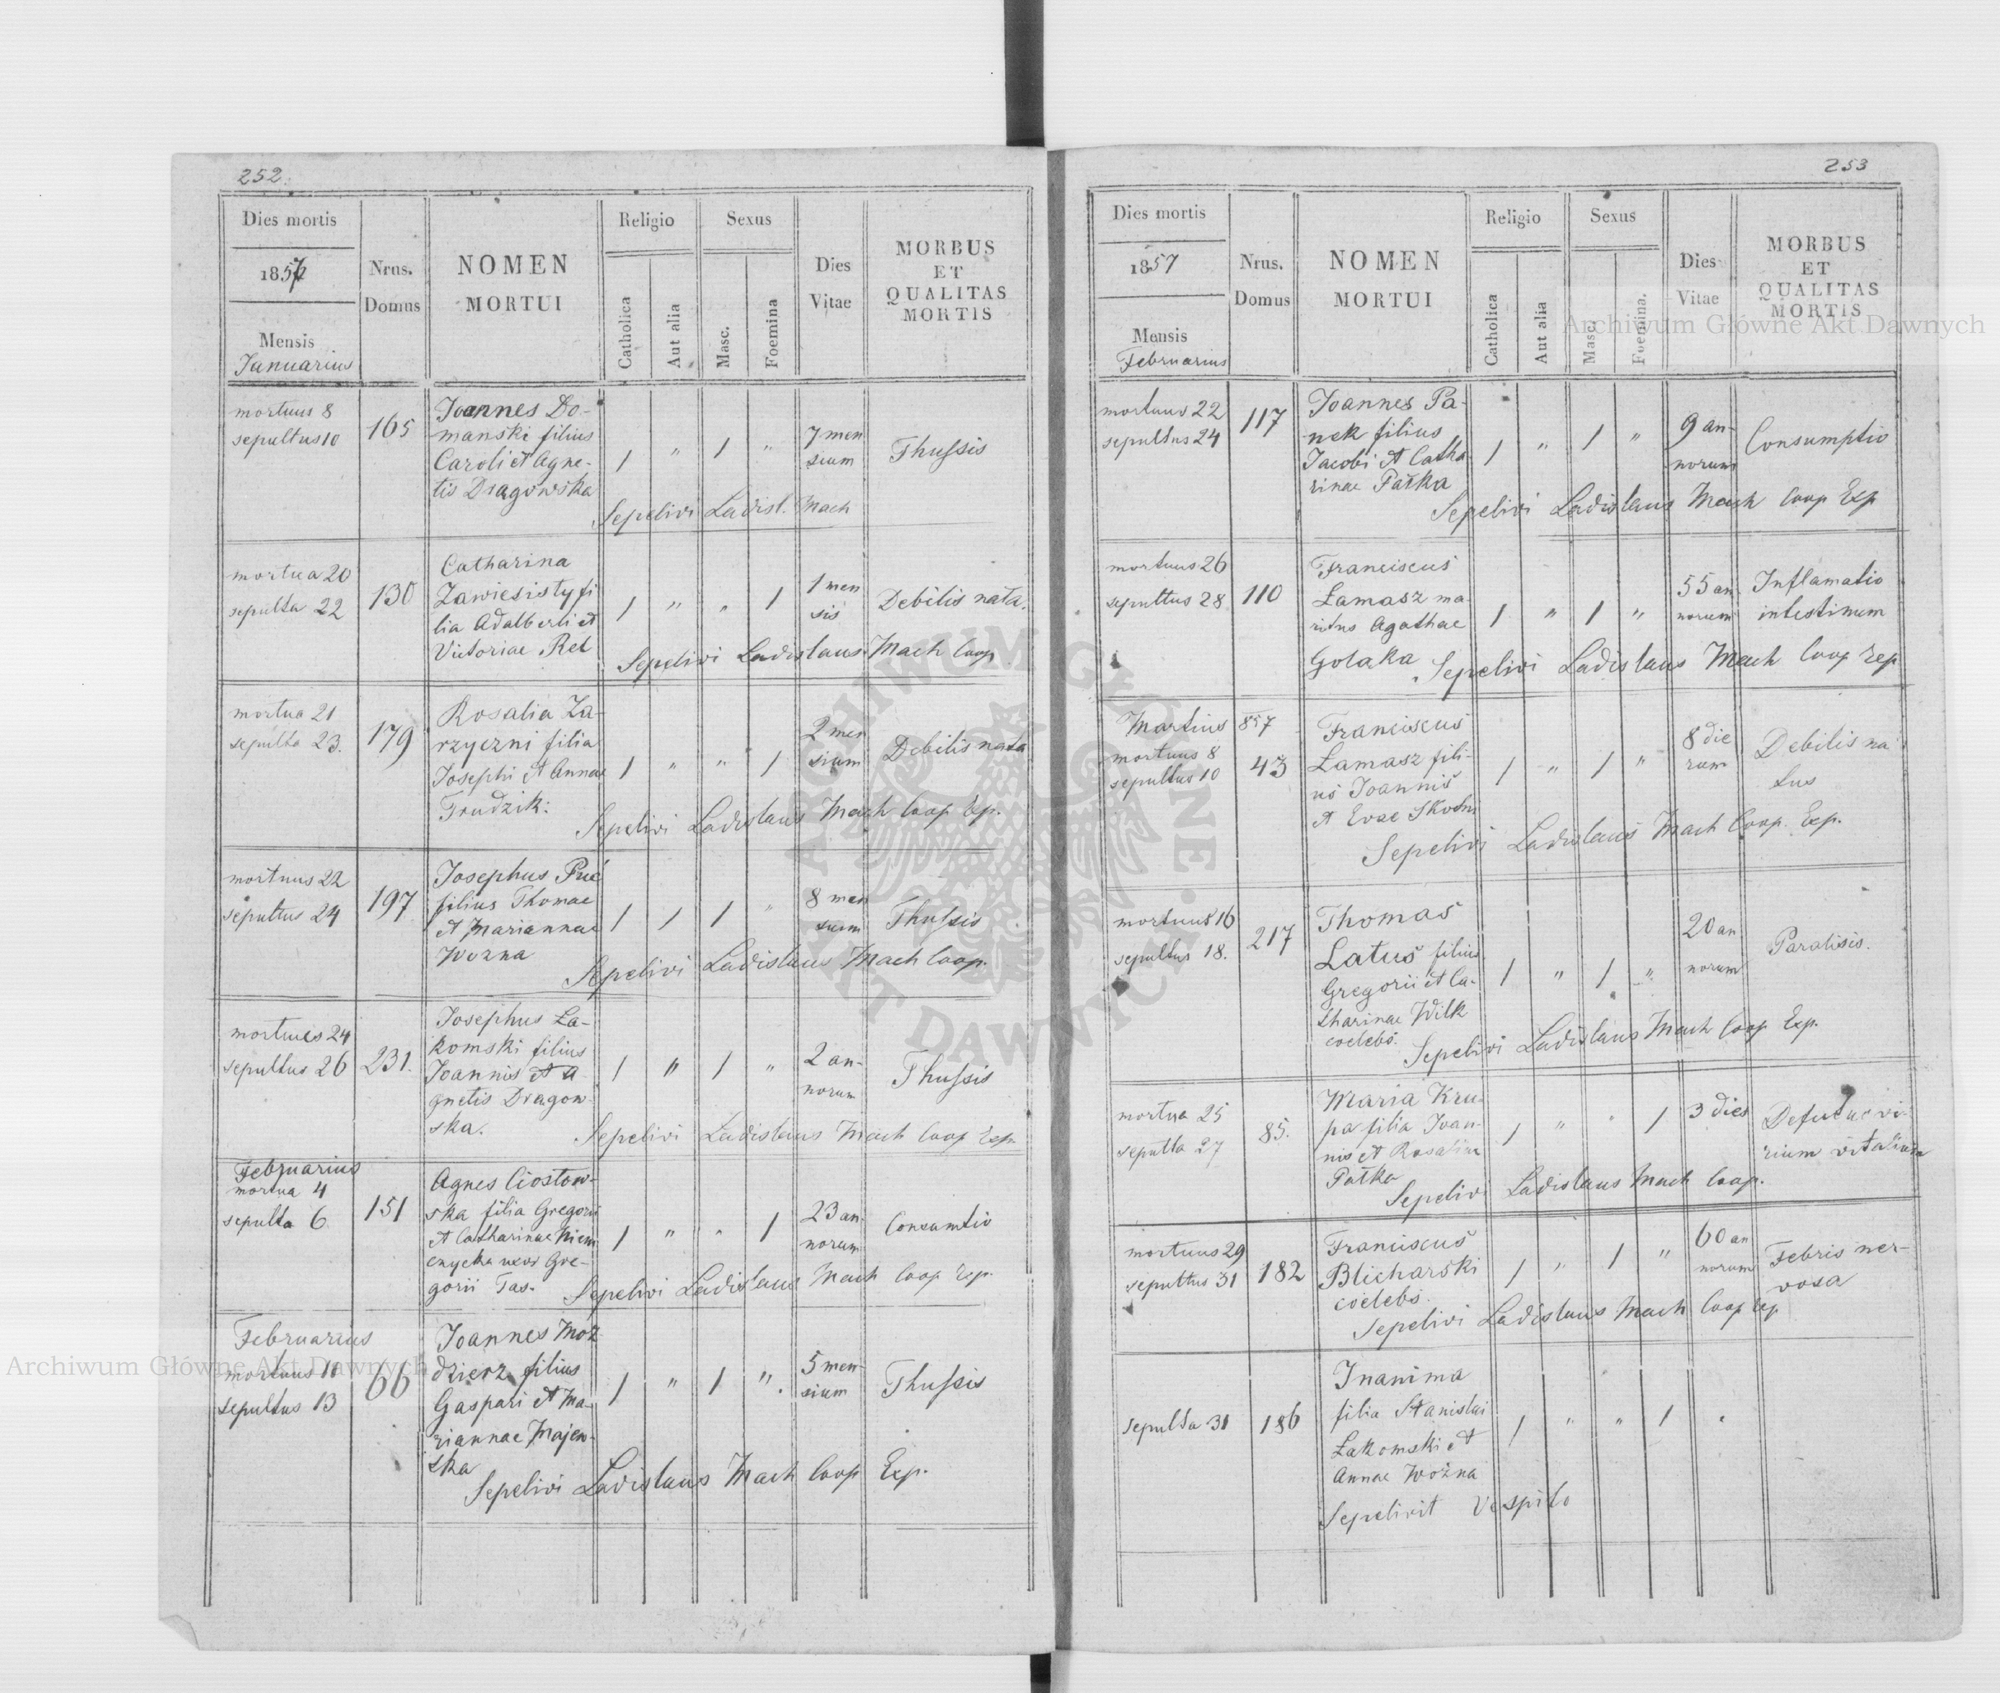 252.
Dies mortis
1857
Mensis
Januarius
Nrus.
Domus
NOMEN
MORTUI
Religio
Catholica
Aut alia
Sexus
Masc.
Foemina
Dies
Vitae
MORBUS
ET
QUALITAS
MORTIS
mortuus 8
sepultus 10
165
Joannes Do-
manski filius
Caroli et Agne-
tis Dragowska
1 " 1 "
7 men
sium
Thussis
Sepelivi Ladisl. Mach
mortua 20
sepulta 22
130
Catharina
Zawiesisty fi
lia Adalberti et
Victoriae Ret
1 " " 1
1 men
sis
Debilis nata.
Sepelivi Ladislaus Mach Coop
mortua 21
sepulta 23.
179
Rosalia Za-
rzyczni filia
Josephi et Annae
Trudzik:
1 " " 1
2 men
sium
Debilis nata
Sepelivi Ladislaus Mach Coop Exp.
mortuus 22
sepultus 24
197
Josephus Puć
filius Thomae
et Mariannae
Wozna
1 1 1 "
8 men
sium
Thussis
Sepelivi Ladislaus Mach Coop.
mortuus 24
sepultus 26
231.
Josephus Ła-
komski filius
Joannis et A
gnetis Dragow-
ska.
1 " 1 "
2 an-
norum
Thussis
Sepelivi Ladislaus Mach Coop Exp.
Februarius
mortua 4
sepulta 6
151
Agnes Ciostow-
ska filia Gregorii
et Catharinae Niem
czycka uxor Gre-
gorii Tas.
1 " " 1
23 an-
norum
Consumtio
Sepelivi Ladislaus Mach Coop Exp.
Februarius
mortuus 11
sepultus 13
66
Joannes Moź
dzierz filius
Gaspari et Ma-
riannae Majew-
ska
1 " 1 "
5 men-
sium
Thussis
Sepelivi Ladislaus Mach Coop Exp.
253
Dies mortis
1857
Mensis
Februarius
Nrus.
Domus
NOMEN
MORTUI
Religio
Catholica
Aut alia
Sexus
Masc.
Foemina.
Dies
Vitae
MORBUS
ET
QUALITAS
MORTIS
mortuus 22
sepultus 24
117
Joannes Pa-
nek filius
Jacobi et Catha
rinae Pałka
1 " 1 "
9 an-
norum
Consumptio
Sepelivi Ladislaus Mach Coop Exp
mortuus 26
sepultus 28
110
Franciscus
Łamasz ma-
ritus Agathae
Golaka
1 " 1 "
55 an
norum
Inflamatio
intestinum
Sepelivi Ladislaus Mach Coop Exp
Martius 857
mortuus 8
sepultus 10
43
Franciscus
Łamasz fili-
us Joannis
et Evae
1 " 1 "
8 die
rum
Debilis na
tus
Sepelivi Ladislaus Mach Coop. Exp.
mortuus 16
sepultus 18.
217
Thomas
Latus filius
Gregorii et Ca-
tharinae Wilk
coelebs.
1 " 1 "
20 an
norum
Paralisis.
Sepelivi Ladislaus Mach Coop Exp.
mortua 25
sepulta 27
85.
Maria Kru-
pa filia Joan-
nis et Rosaliae
Pałka
1 " " 1
3 dies
Defectus vi-
rium vitalium
Sepelivi Ladislaus Mach Coop.
mortuus 29
sepultus 31
182
Franciscus
Blicharski
coelebs.
1 " 1 "
60 an
norum
Febris ner-
vosa
Sepelivi Ladislaus Mach Coop Exp
sepulta 31
186
Inanima
filia Stanislai
Łakomski et
Annae Woźna
1 " " 1
Sepelivit Vespilo
Archiwum Główne Akt Dawnych
Archiwum Główne Akt Dawnych
ARCHIWUM GŁÓWNE · AKT DAWNYCH ·